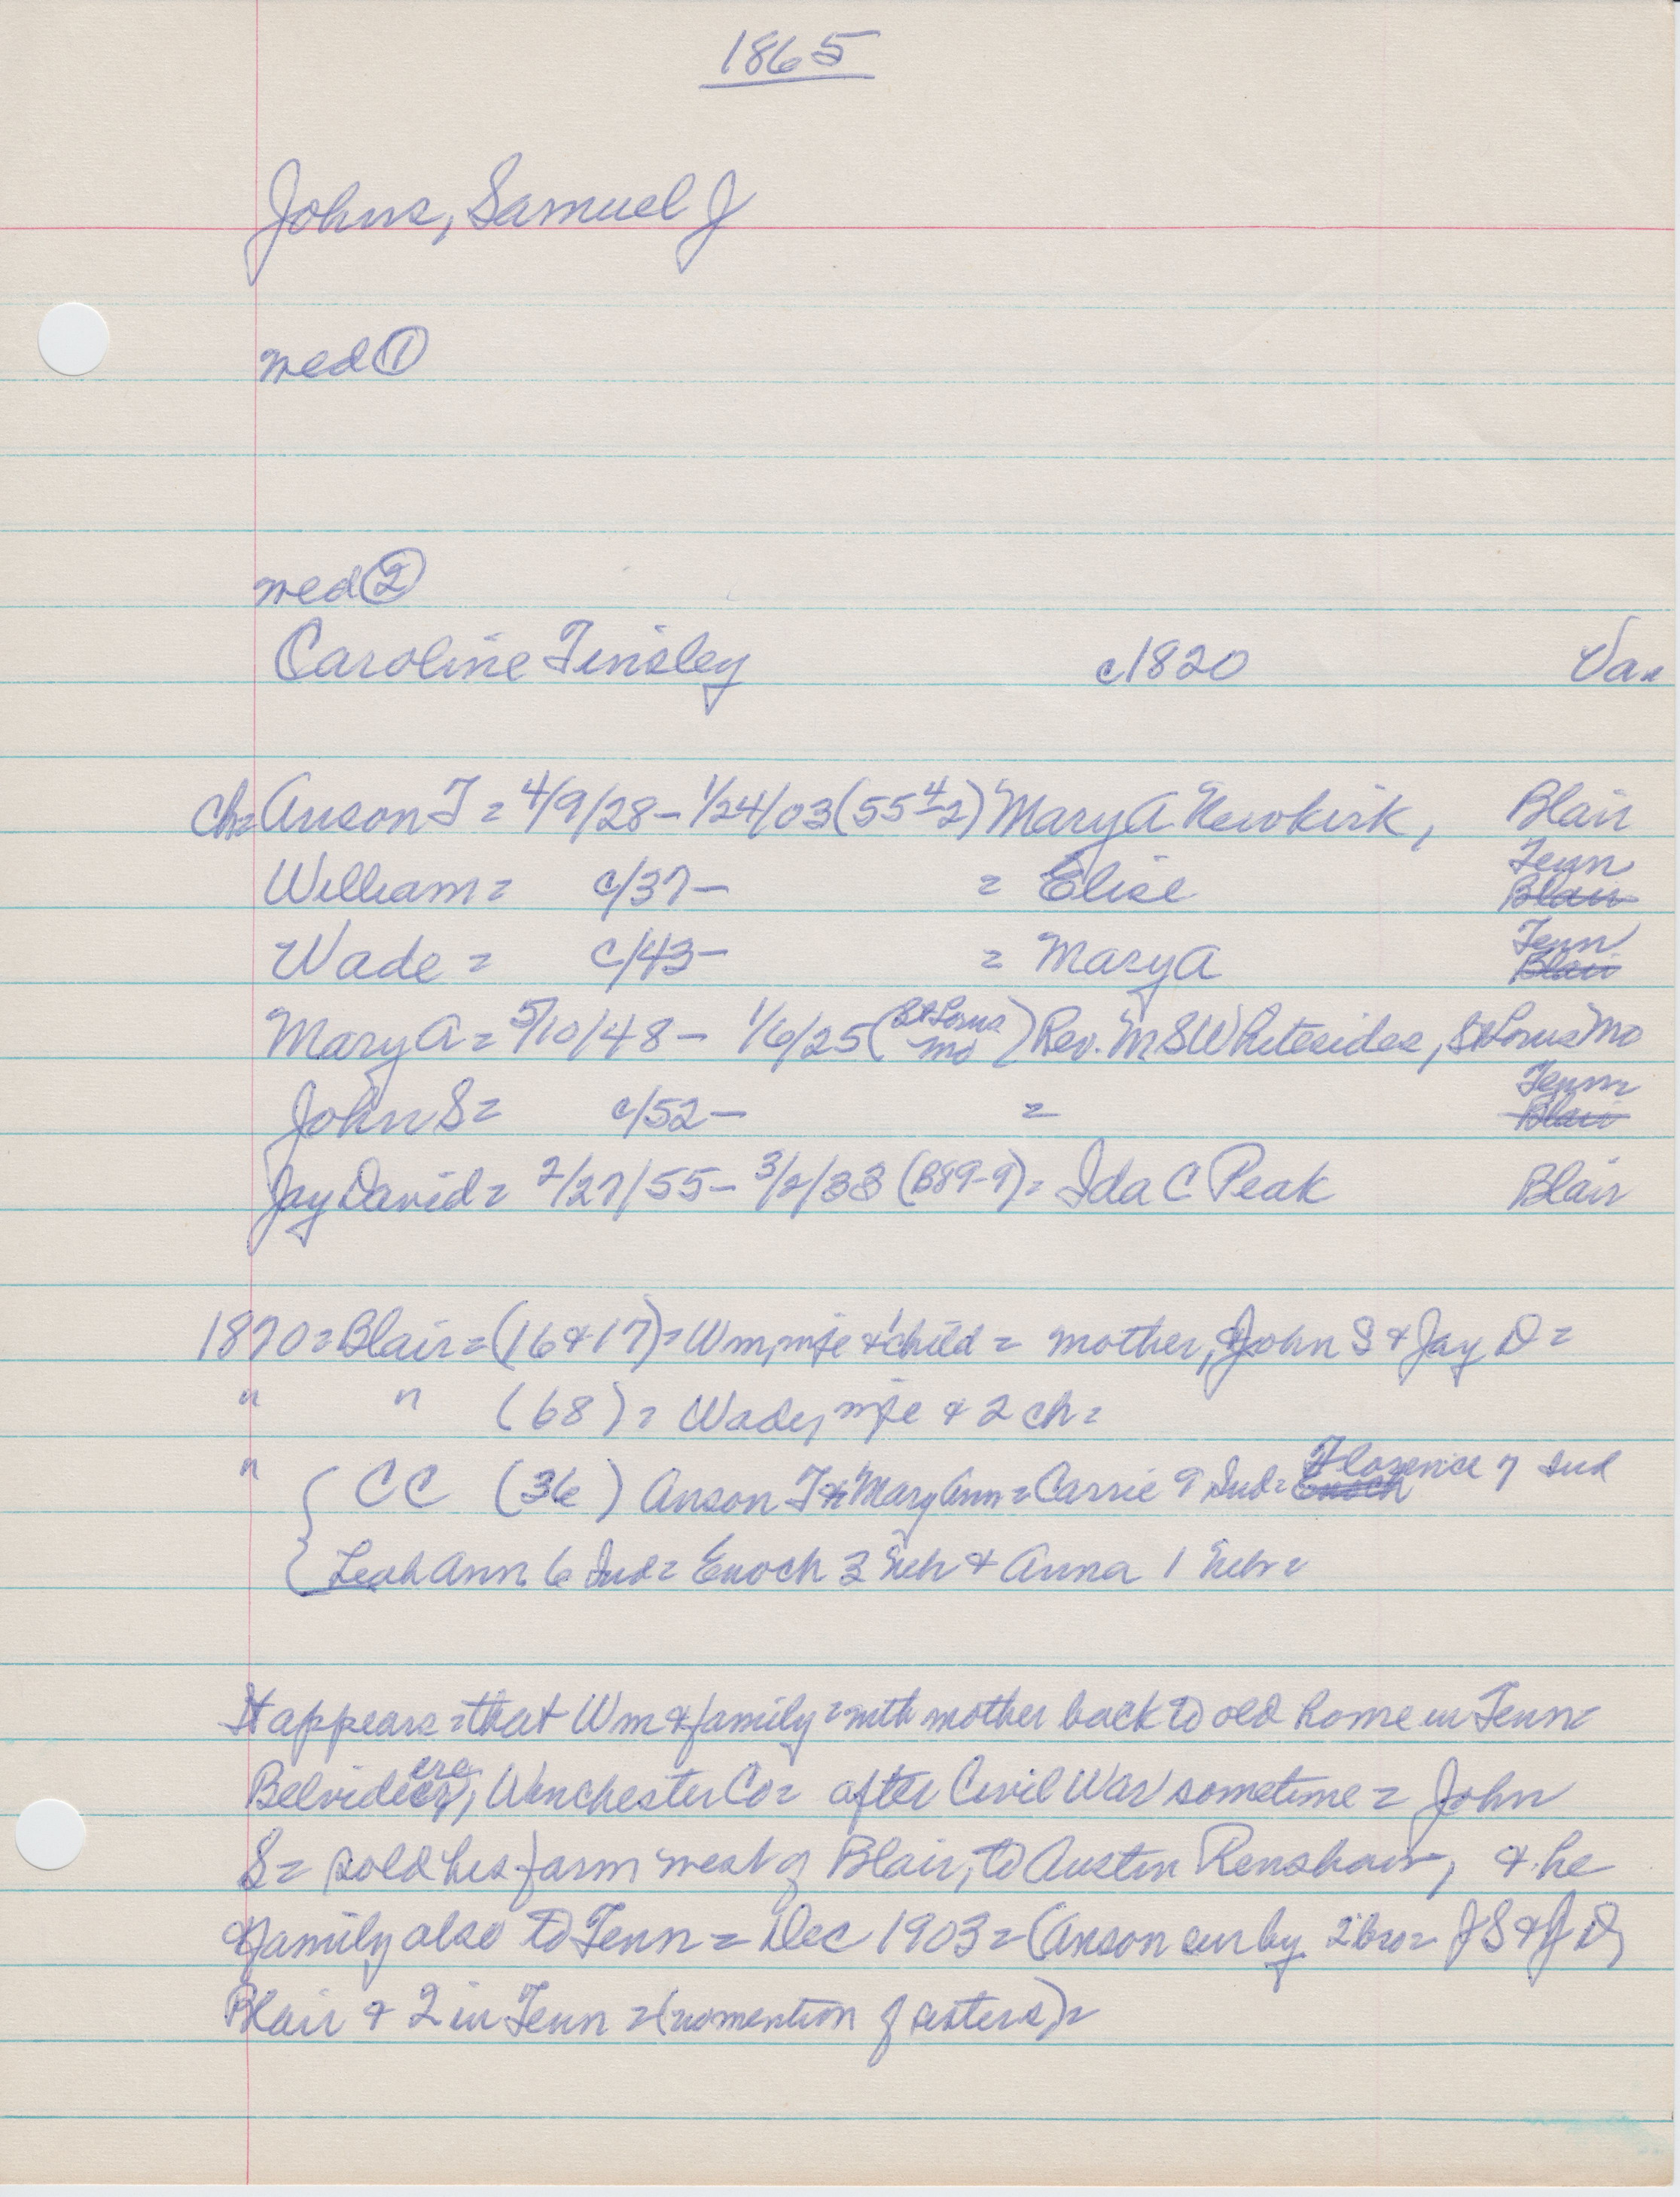 1865
Johns, Samuel J
med ①
med ②
Caroline Tinsley c1820 Va.
ch= Anson T = 4/9/28 – 1/24/03 (55 4-2) Mary A Newkirk, Blair
Tenn
William = c/37 – = Elise Blair
Tenn
Wade = c/43 – = Mary A Blair
Mary A = 5/10/48 – 1/6/25 (St Louis Mo) Rev. M S Whitesides, St Louis Mo
Tenn
John S = c/52 – = Blair
Jay David = 2/27/55 – 3/2/33 (B89-9) = Ida C Peak Blair
1870 = Blair = (16 & 17) = Wm, wife & 1 child = mother, John S & Jay D =
" " (68) = Wade, wife & 2 ch =
" CC (36) Anson T & Mary Ann = Carrie 9 Ind = Enoch Florence 7 Ind
Leah Ann 6 Ind = Enoch 3 Neb & Anna 1 Neb =
It appears = that Wm & family = with mother back to old home in Tenn =
Belvidere, Winchester Co = after Civil War sometime = John
S = sold his farm west of Blair, to Austin Renshaw, & he
& family also to Tenn = Dec 1903 = (Anson sur by 2 bro = J S & J D,
Blair & 2 in Tenn = (no mention of sisters) =